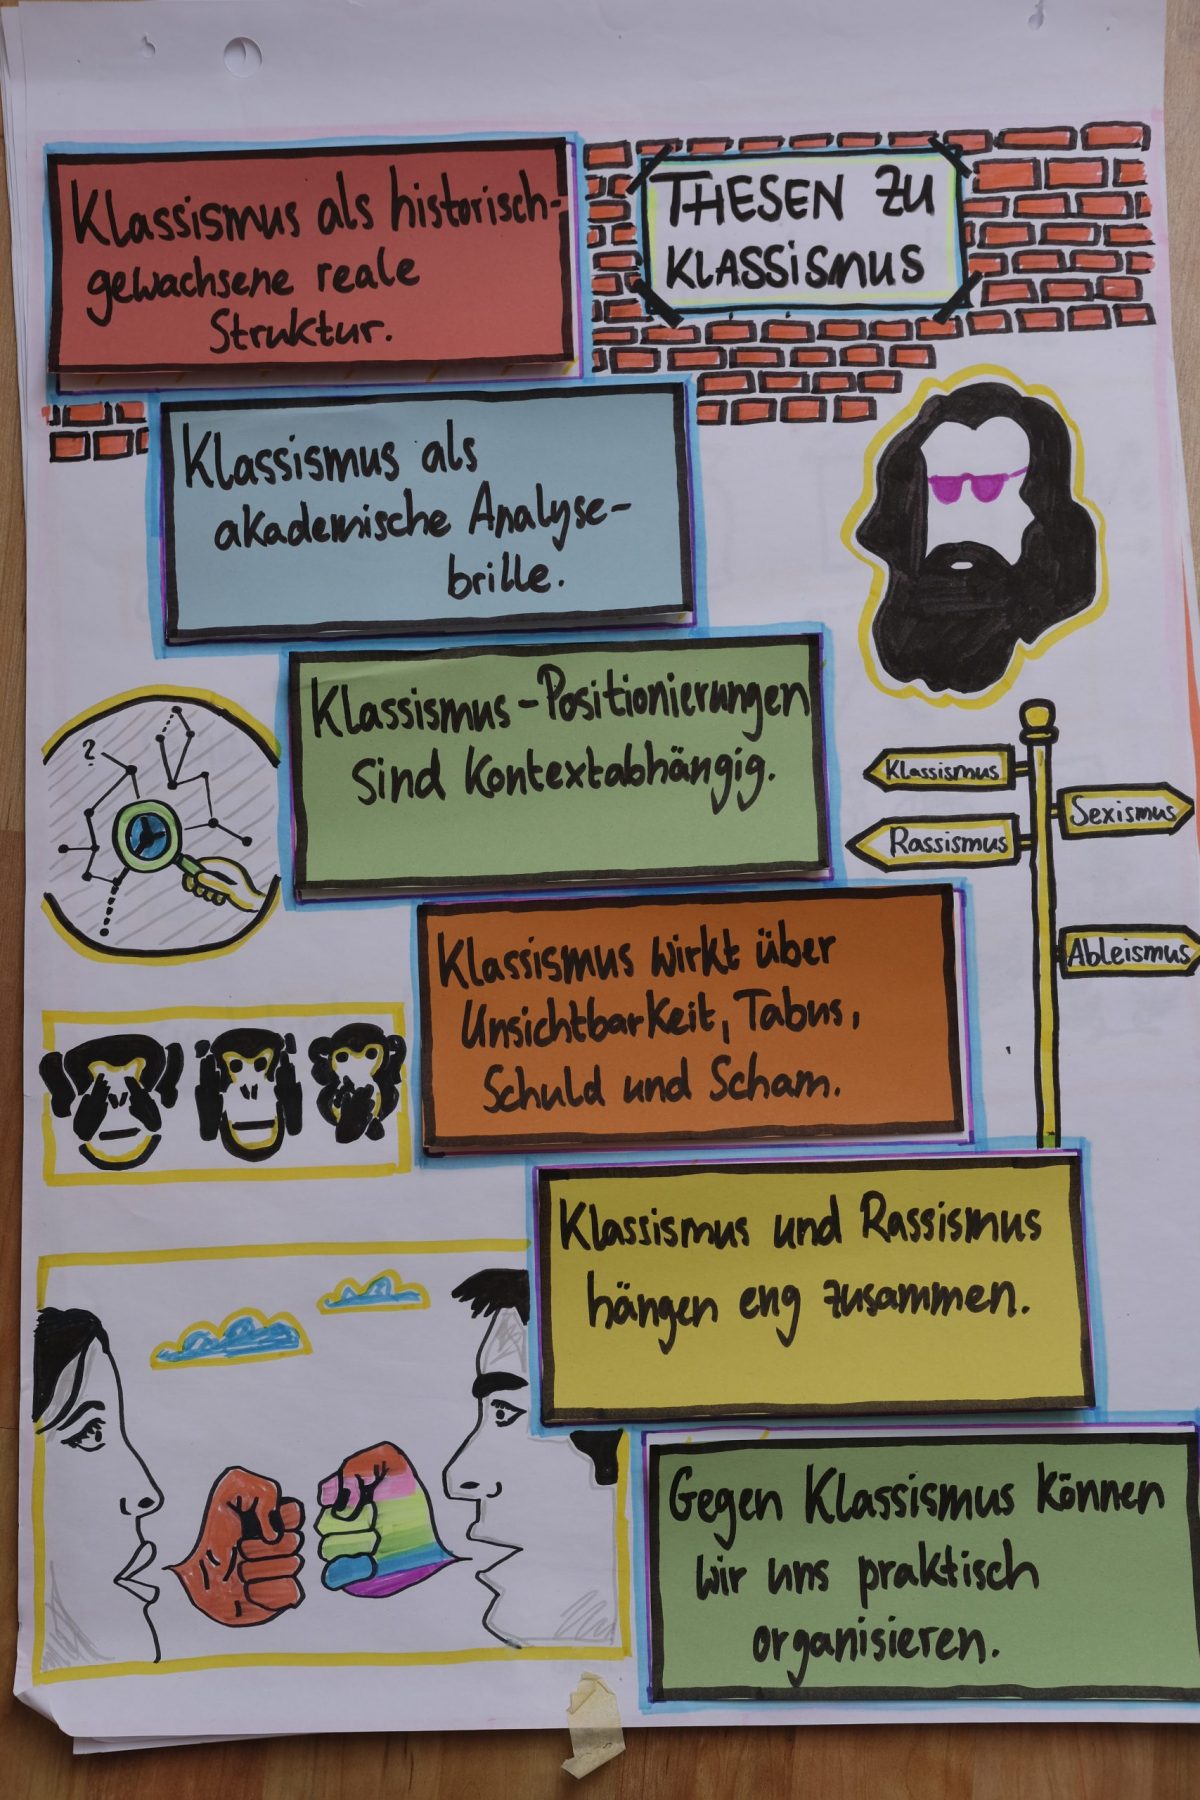 THESEN ZU
KLASSISMUS
Klassismus als historisch-
gewachsene reale
Struktur.
Klassismus als
akademische Analyse-
brille.
Klassismus-Positionierungen
sind Kontextabhängig.
Klassismus
Sexismus
Rassismus
Ableismus
?
Klassismus wirkt über
Unsichtbarkeit, Tabus,
Schuld und Scham.
Klassismus und Rassismus
hängen eng zusammen.
Gegen Klassismus können
wir uns praktisch
organisieren.